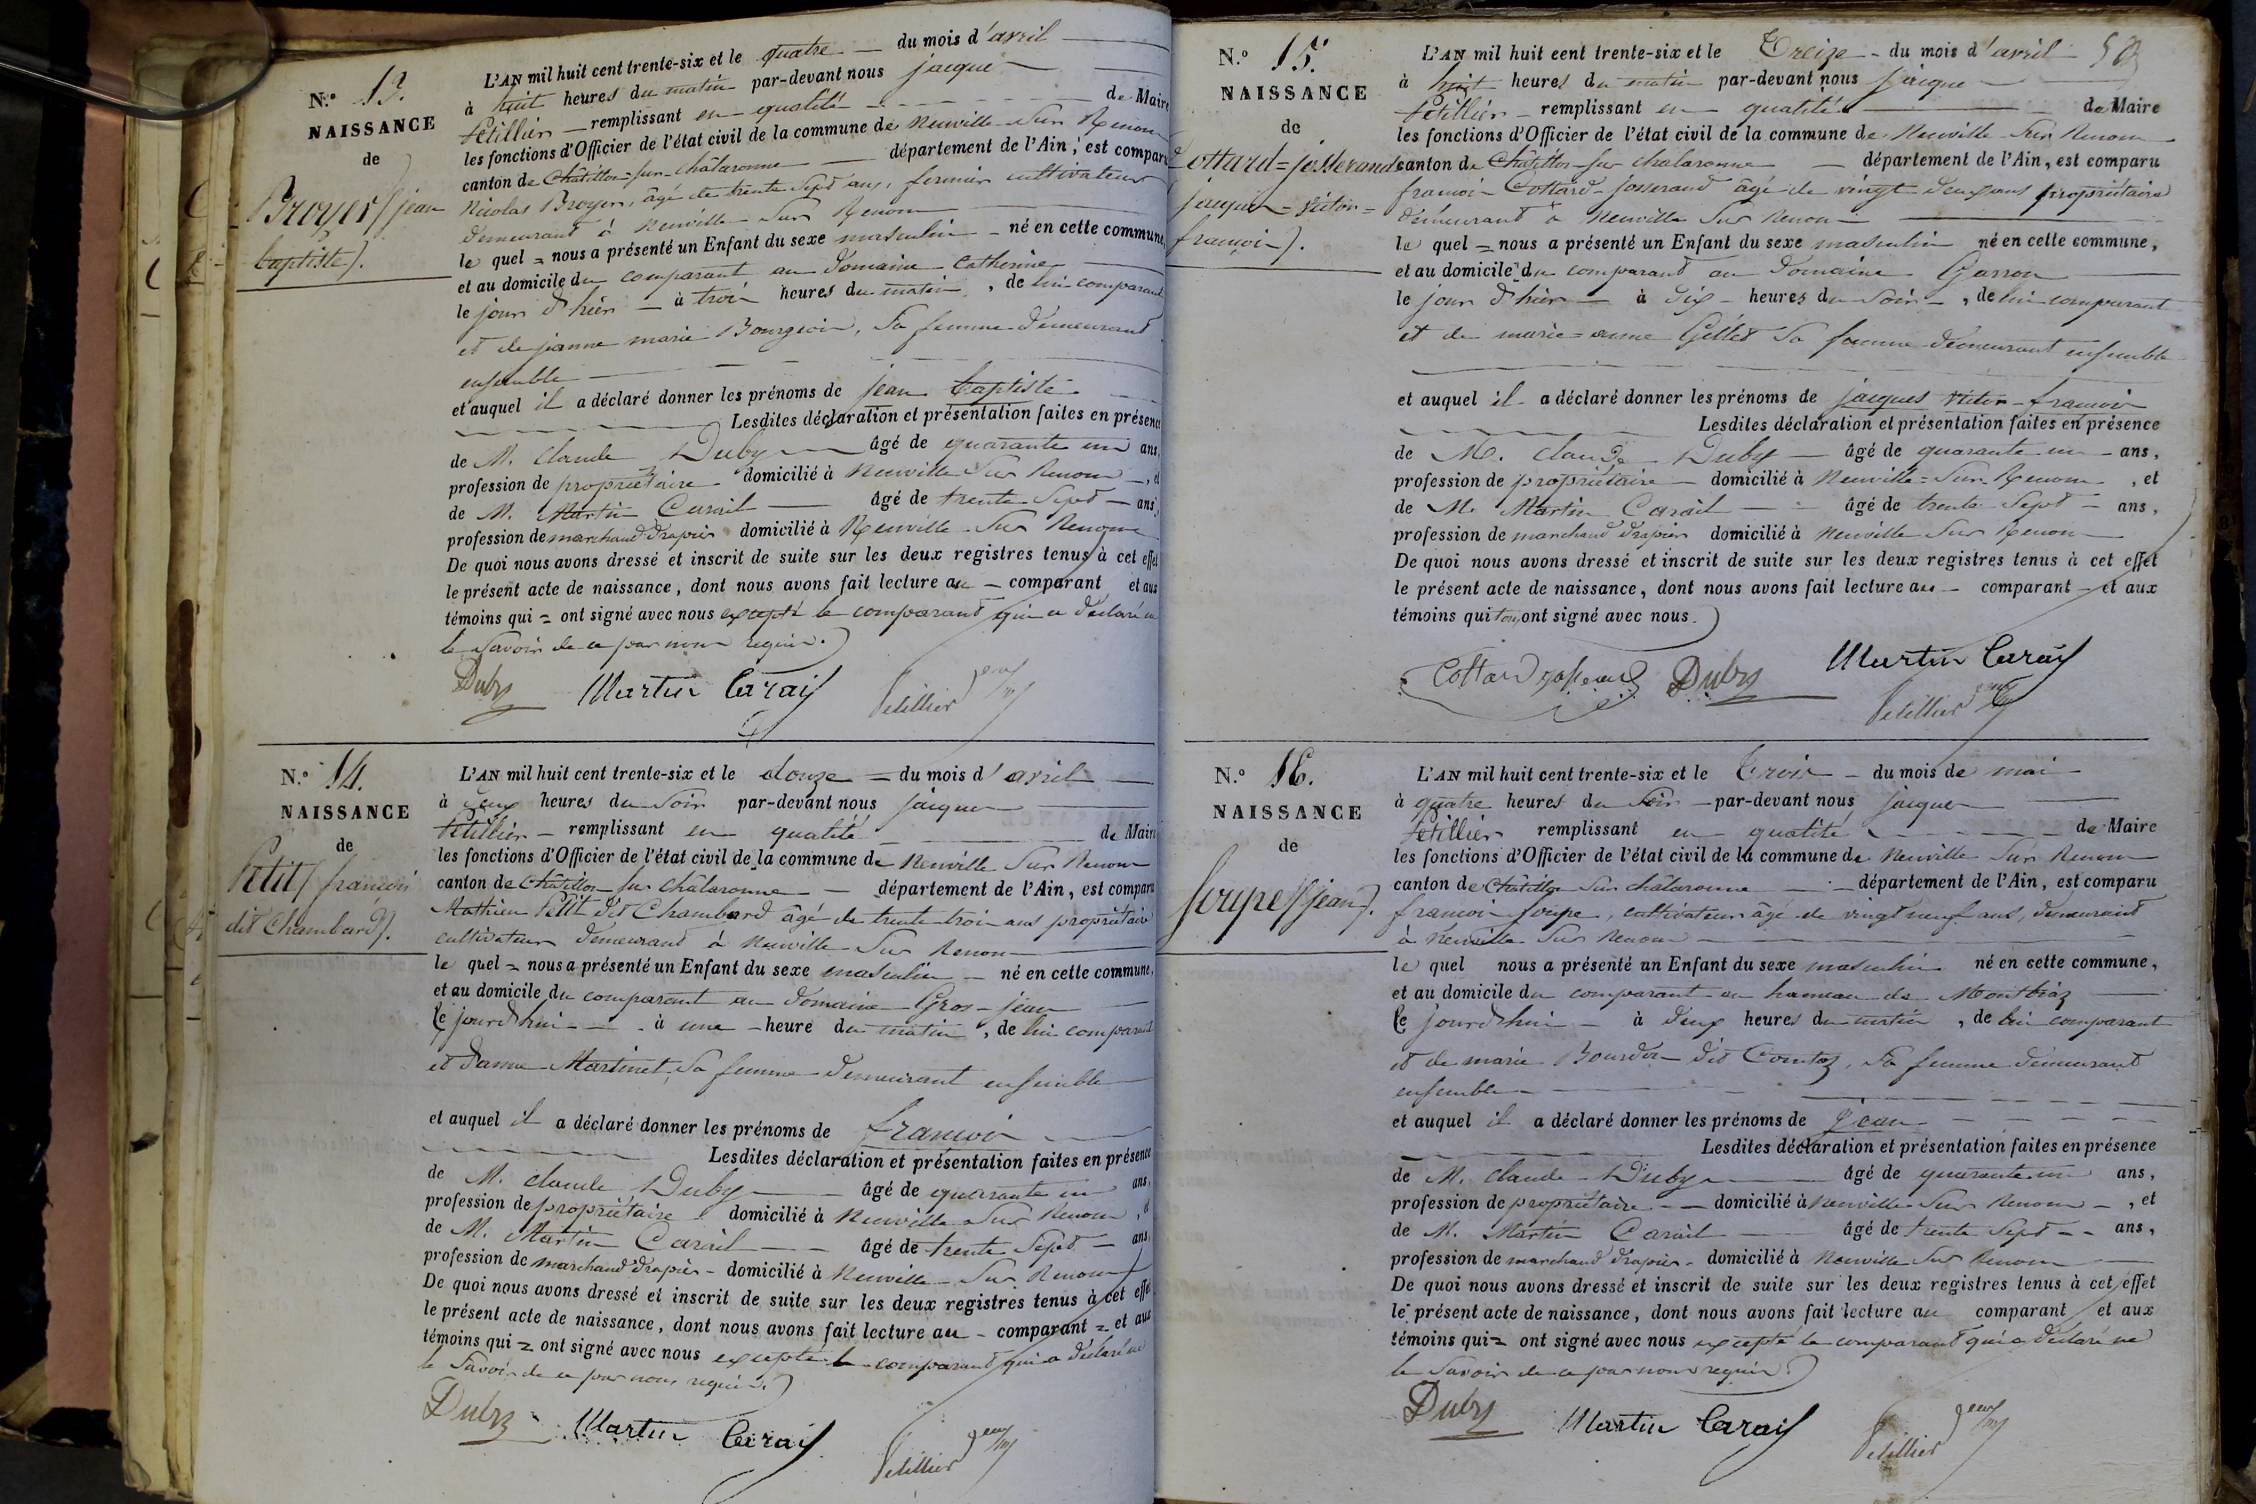 N.º 13.
NAISSANCE
de
Broyer (jean
baptiste).
L'AN mil huit cent trente-six et le quatre du mois d'avril
à huit heures du matin par-devant nous jacque
Petillier remplissant en qualité de Maire
les fonctions d'Officier de l'état civil de la commune de Neuville Sur Renom
canton de Châtillon-sur-châlaronne département de l'Ain, est comparu
Nicolas Broyer, âgé de trente Sept ans, fermier cultivateur
demeurant à Neuville Sur Renom
le quel = nous a présenté un Enfant du sexe masculin né en cette commune,
et au domicile du comparant au Domaine Catherine
le jour d'hier à troi heures du matin, de lui comparant
et de jeanne marie Bourgeois, Sa femme demeurant
ensemble
et auquel il a déclaré donner les prénoms de jean baptiste
Lesdites déclaration et présentation faites en présence
de M. Claude Duby âgé de quarante un ans,
profession de propriétaire domicilié à Neuville Sur Renom, et
de M. Martin Carail âgé de trente Sept ans,
profession de marchand drapier domicilié à Neuville Sur Renom
De quoi nous avons dressé et inscrit de suite sur les deux registres tenus à cet effet
le présent acte de naissance, dont nous avons fait lecture au comparant et aux
témoins qui = ont signé avec nous excepté le comparant qui a déclaré ne
le Savoir de ce par nous requis.
Duby Martin Carail Petillier
N.º 14.
NAISSANCE
de
Petit (françoi
dit Chambard).
L'AN mil huit cent trente-six et le douze = du mois d'avril
à deux heures du Soir par-devant nous jacque
Petillier remplissant en qualité de Maire
les fonctions d'Officier de l'état civil de la commune de Neuville Sur Renom
canton de Châtillon sur châlaronne département de l'Ain, est comparu
Mathieu Petit dit Chambard âgé de trente troi ans propriétaire
cultivateur demeurant à Neuville Sur Renom
le quel = nous a présenté un Enfant du sexe masculin né en cette commune,
et au domicile du comparant au domaine Gros-jean
le jourd'hui à une heure du matin, de lui comparant
et d'anne Martinet Sa femme demeurant ensemble
et auquel il a déclaré donner les prénoms de françoi
Lesdites déclaration et présentation faites en présence
de M. claude Duby âgé de quarante un ans,
profession de propriétaire domicilié à Neuville Sur Renom, et
de M. Martin Carail âgé de trente Sept ans,
profession de marchand drapier domicilié à Neuville Sur Renom
De quoi nous avons dressé et inscrit de suite sur les deux registres tenus à cet effet
le présent acte de naissance, dont nous avons fait lecture au comparant = et aux
témoins qui = ont signé avec nous excepté le comparant qui a déclaré ne
le Savoir de ce par nous requis.
Duby Martin Carail Petillier
N.º 15.
NAISSANCE
de
Cottard=josserand
(jacques=victor=
françoi).
L'AN mil huit cent trente-six et le Treize du mois d'avril
à huit heures du matin par-devant nous jacque
Petillier remplissant en qualité de Maire
les fonctions d'Officier de l'état civil de la commune de Neuville Sur Renom
canton de Châtillon sur chalaronne département de l'Ain, est comparu
françoi Cottard-josserand âgé de vingt deux ans propriétaire
demeurant à Neuville Sur Renom
le quel = nous a présenté un Enfant du sexe masculin né en cette commune,
et au domicile du comparant au domaine Garron
le jour d'hier à dix heures du Soir, de lui comparant
et de marie=anne Gillet Sa femme demeurant ensemble
et auquel il a déclaré donner les prénoms de jacques victor françoi
Lesdites déclaration et présentation faites en présence
de M. claude Duby âgé de quarante un ans,
profession de propriétaire domicilié à Neuville=Sur Renom, et
de M. Martin Carail âgé de trente Sept ans,
profession de marchand drapier domicilié à Neuville Sur Renom
De quoi nous avons dressé et inscrit de suite sur les deux registres tenus à cet effet
le présent acte de naissance, dont nous avons fait lecture au comparant et aux
témoins qui tous ont signé avec nous.
Cottard josserand Duby Martin Carail
Petillier
N.º 16.
NAISSANCE
de
Soupe (jean).
L'AN mil huit cent trente-six et le Trois du mois de mai
à quatre heures du Soir par-devant nous jacque
Petillier remplissant en qualité de Maire
les fonctions d'Officier de l'état civil de la commune de Neuville Sur Renom
canton de Châtillon Sur châlaronne département de l'Ain, est comparu
françoi Soupe, cultivateur âgé de vingt neuf ans, demeurant
à Neuville Sur Renom
le quel nous a présenté un Enfant du sexe masculin né en cette commune,
et au domicile du comparant au hameau de Montbiaz
le jourd'hui à deux heures du matin, de lui comparant
et de marie Bourdon dit Comtaz, Sa femme demeurant
ensemble
et auquel il a déclaré donner les prénoms de jean
Lesdites déclaration et présentation faites en présence
de M. claude Duby âgé de quarante un ans,
profession de propriétaire domicilié à Neuville Sur Renom, et
de M. Martin Carail âgé de trente Sept ans,
profession de marchand drapier domicilié à Neuville Sur Renom
De quoi nous avons dressé et inscrit de suite sur les deux registres tenus à cet effet
le présent acte de naissance, dont nous avons fait lecture au comparant et aux
témoins qui = ont signé avec nous excepté le comparant qui a déclaré ne
le Savoir de ce par nous requis.
Duby Martin Carail Petillier